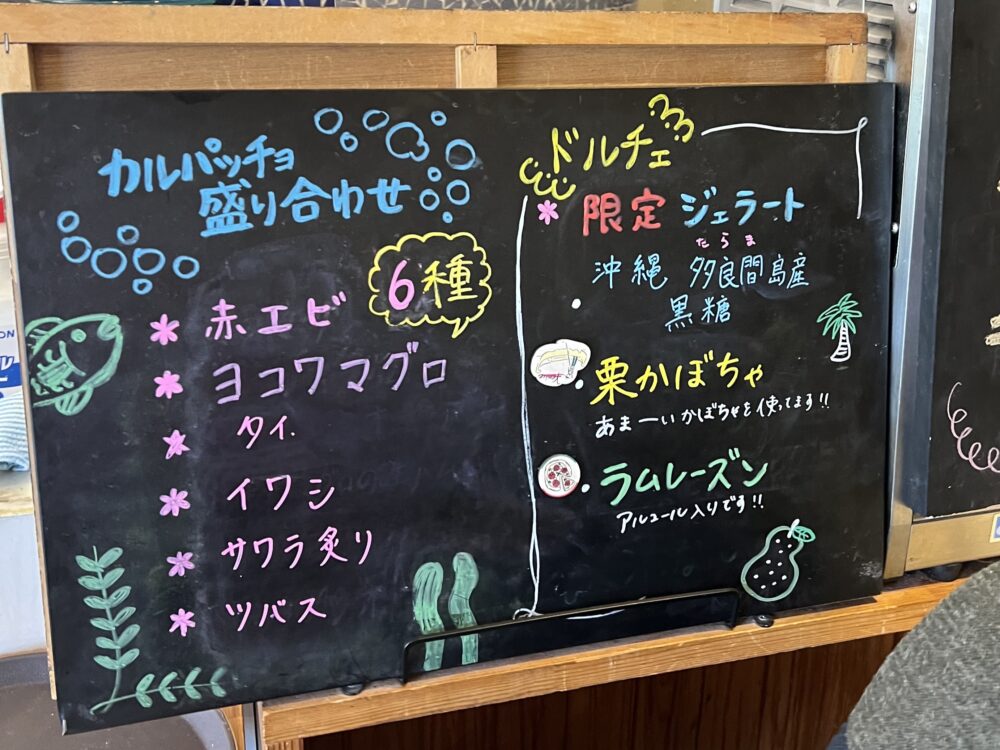 カルパッチョ
盛り合わせ
6種
赤エビ
ヨコワマグロ
タイ
イワシ
サワラ炙り
ツバス
ドルチェ
限定 ジェラート
たらま
沖縄 多良間島産
黒糖
栗かぼちゃ
あまーいかぼちゃを使ってます!!
ラムレーズン
アルコール入りです!!